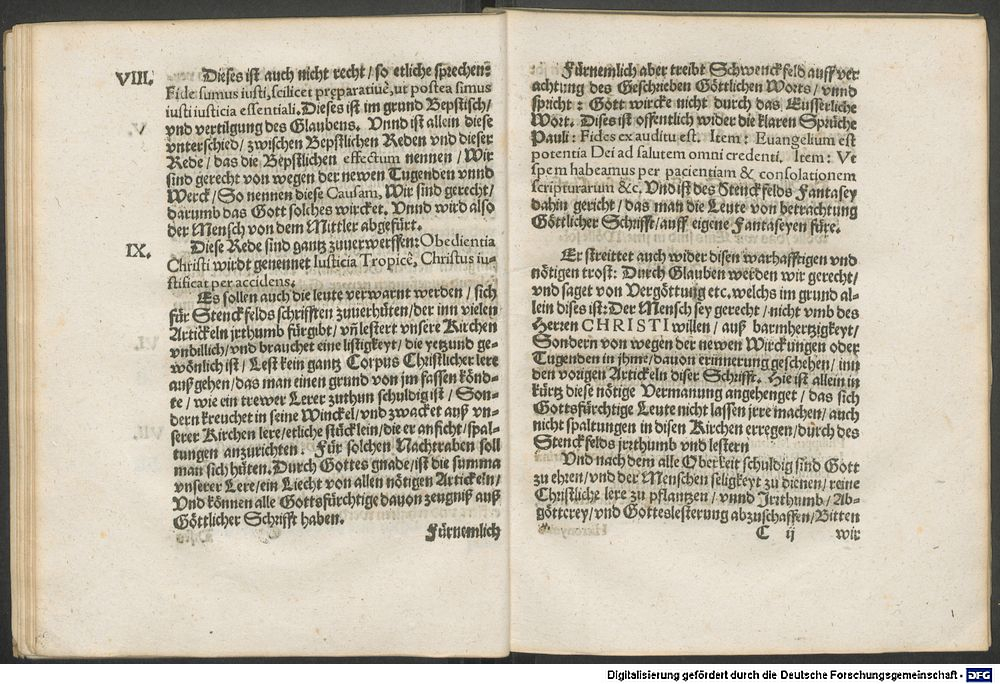 VIII. Dieses ist auch nicht recht/ so etliche sprechen:
Fide sumus iusti, scilicet preparatiuè, ut postea simus
iusti iusticia essentiali. Dieses ist im grund Bepstisch/
vnd vertilgung des Glaubens. Vnnd ist allein diese
vnterschied/ zwischen Bepstlichen Reden vnd dieser
Rede/ das die Bepstlichen effectum nennen/ Wir
sind gerecht von wegen der newen Tugenden vnnd
Werck/ So nennen diese Causam, Wir sind gerecht/
darumb das Gott solches wircket. Vnnd wird also
der Mensch von dem Mittler abgefürt.
IX. Diese Rede sind gantz zuuerwerffen: Obedientia
Christi wirdt genennet Iusticia Tropicè, Christus iu-
stificat per accidens.
Es sollen auch die leute verwarnt werden/ sich
für Stenckfelds schrifften zuuerhüten/ der inn vielen
Artickeln jrthumb fürgibt/ vñ lestert vnsere Kirchen
vnbillich/ vnd brauchet eine listigkeyt/ die yetzund ge-
wönlich ist/ Lest kein gantz Corpus Christlicher lere
außgehen/ das man einen grund von jm fassen könd-
te/ wie ein trewer Lerer zuthun schuldig ist/ Son-
dern kreuchet in seine Winckel/ vnd zwacket auß vn-
serer Kirchen lere/ etliche stücklein/ die er anficht/ spal-
tungen anzurichten. Für solchen Nachtraben soll
man sich hüten. Durch Gottes gnade/ ist die summa
vnserer Lere/ ein Liecht von allen nötigen Artickeln/
Vnd können alle Gottsfürchtige dauon zeugniß auß
Göttlicher Schrifft haben.
Fürnemlich
Fürnemlich aber treibt Schwenckfeld auff ver
achtung des Geschrieben Göttlichen Worts/ vnnd
spricht: Gott wircke nicht durch das Eusserliche
Wort. Dises ist offentlich wider die klaren Sprüche
Pauli: Fides ex auditu est. Item: Euangelium est
potentia Dei ad salutem omni credenti. Item: Vt
spem habeamus per pacientiam & consolationem
scripturarum &c. Vnd ist des Stenckfelds Fantasey
dahin gericht/ das man die Leute von betrachtung
Göttlicher Schrifft/ auff eigene Fantaseyen füre.
Er streittet auch wider disen warhafftigen vnd
nötigen trost: Durch Glauben werden wir gerecht/
vnd saget von Vergöttung etc. welchs im grund al-
lein dises ist: Der Mensch sey gerecht/ nicht vmb des
Herren CHRISTI willen/ auß barmhertzigkeyt/
Sondern von wegen der newen Wirckungen oder
Tugenden in jhme/ dauon erinnerung geschehen/ inn
den vorigen Artickeln diser Schrifft. Hie ist allein in
kürtz diese nötige Vermanung angehenget/ das sich
Gottsfürchtige Leute nicht lassen jrre machen/ auch
nicht spaltungen in disen Kirchen erregen/ durch des
Stenckfelds jrzthumb vnd lestern
Vnd nach dem alle Oberkeit schuldig sind Gott
zu ehren/ vnd der Menschen seligkeyt zu dienen/ reine
Christliche lere zu pflantzen/ vnnd Jrrthumb/ Ab-
götterey/ vnd Gotteslesterung abzuschaffen/ Bitten
C ij wir
Digitalisierung gefördert durch die Deutsche Forschungsgemeinschaft - DFG